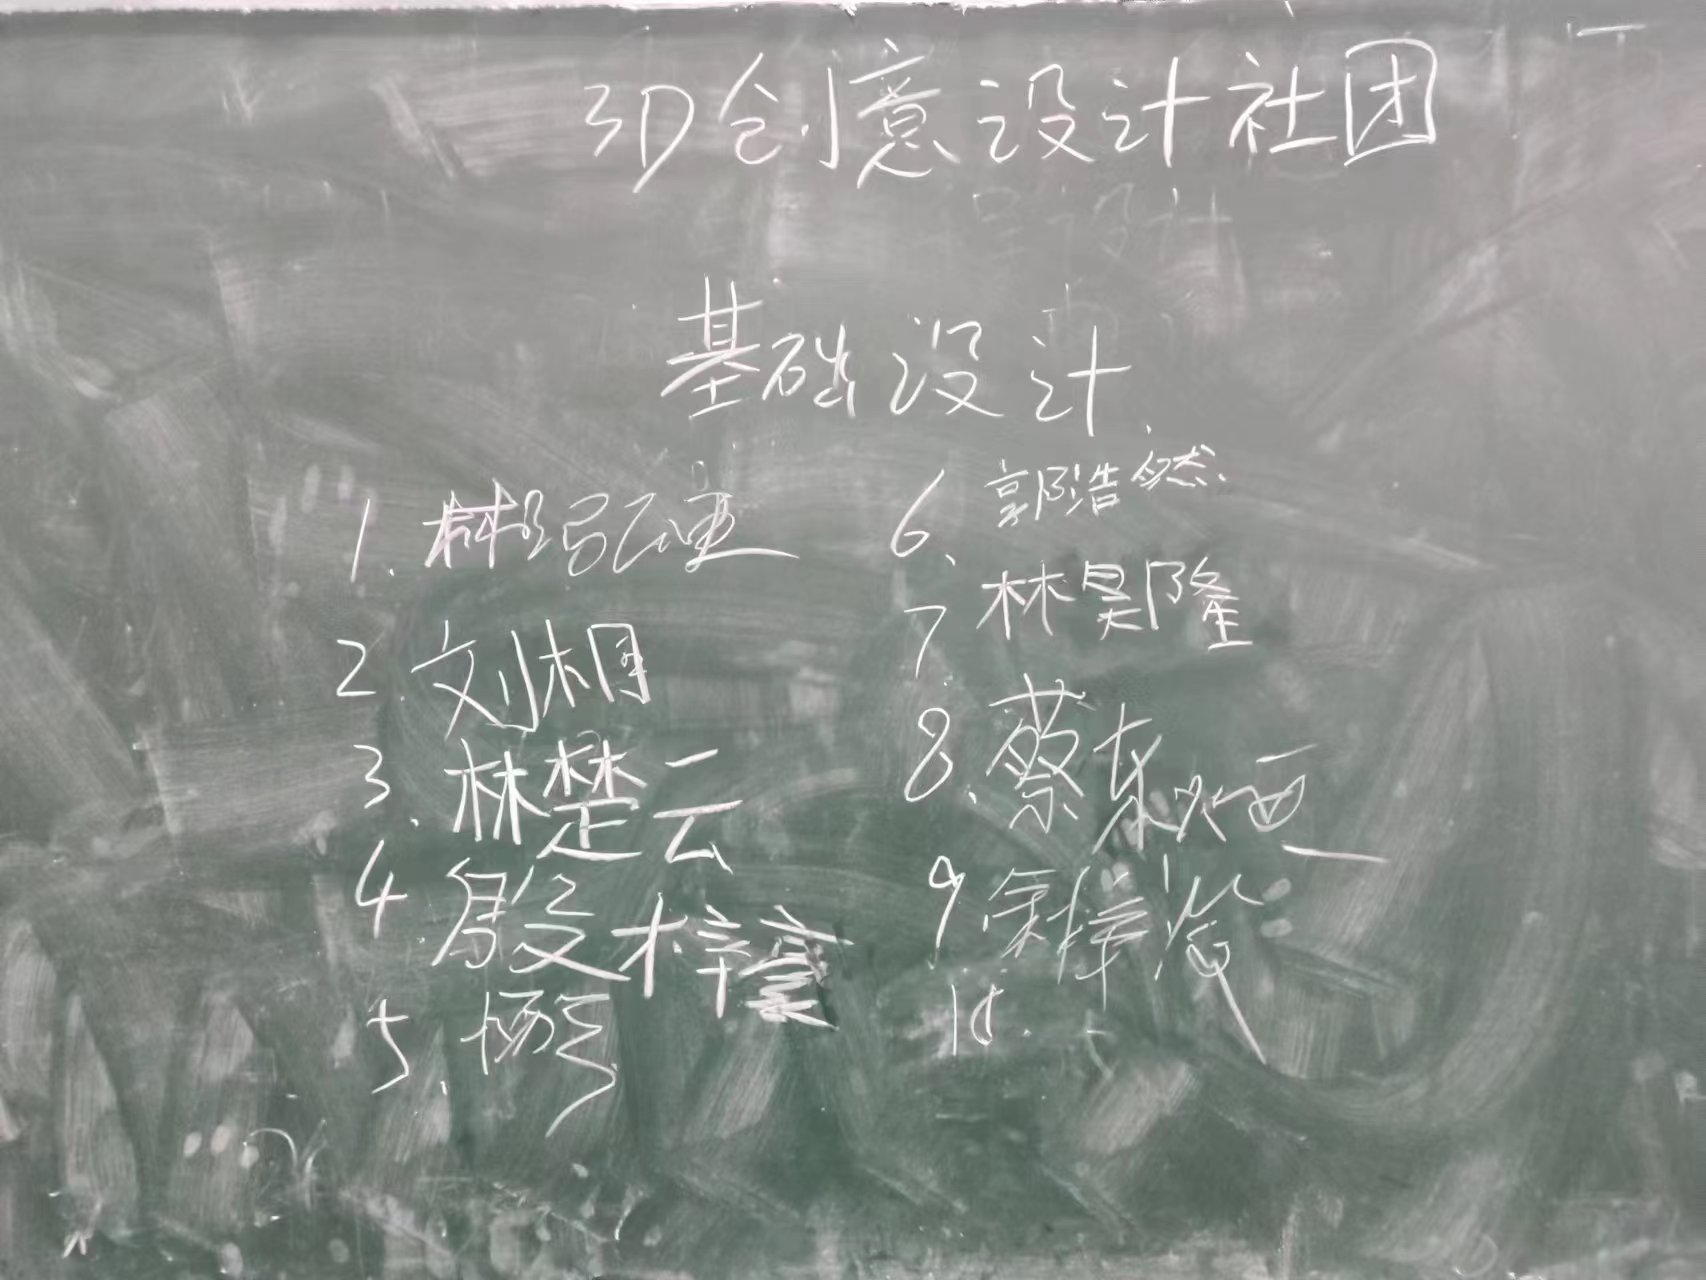 3D创意设计社团
基础设计
1.林
2.刘桐
3.林楚云
4.殷梓豪
5.杨
6.郭浩然
7.林昊隆
8.蔡东
9.余梓
10.